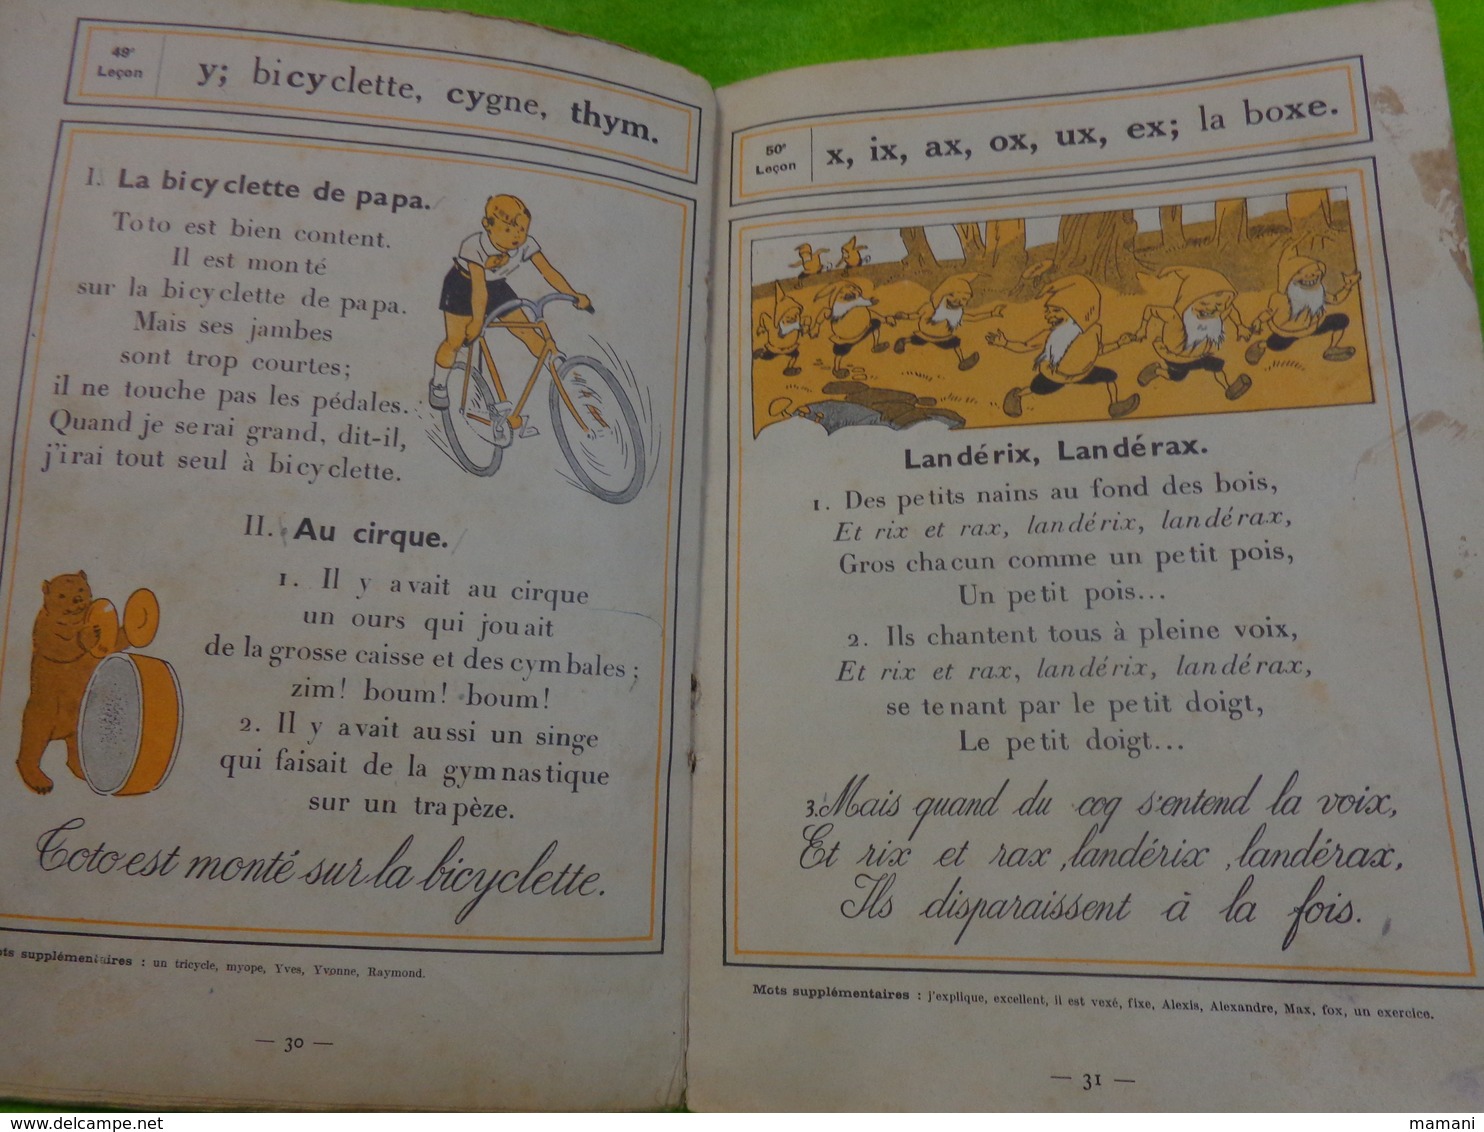 49e
Leçon
y; bicyclette, cygne, thym.
I. La bicyclette de papa.
Toto est bien content.
Il est monté
sur la bicyclette de papa.
Mais ses jambes
sont trop courtes;
il ne touche pas les pédales.
Quand je serai grand, dit-il,
j'irai tout seul à bicyclette.
II. Au cirque.
1. Il y avait au cirque
un ours qui jouait
de la grosse caisse et des cymbales;
zim! boum! boum!
2. Il y avait aussi un singe
qui faisait de la gymnastique
sur un trapèze.
Toto est monté sur la bicyclette.
supplémentaires : un tricycle, myope, Yves, Yvonne, Raymond.
— 30 —
50e
Leçon
x, ix, ax, ox, ux, ex; la boxe.
Landérix, Landérax.
1. Des petits nains au fond des bois,
Et rix et rax, landérix, landérax,
Gros chacun comme un petit pois,
Un petit pois...
2. Ils chantent tous à pleine voix,
Et rix et rax, landérix, landérax,
se tenant par le petit doigt,
Le petit doigt...
3. Mais quand du coq s'entend la voix,
Et rix et rax, landérix, landérax,
Ils disparaissent à la fois.
Mots supplémentaires : j'explique, excellent, il est vexé, fixe, Alexis, Alexandre, Max, fox, un exercice.
— 31 —
mamani